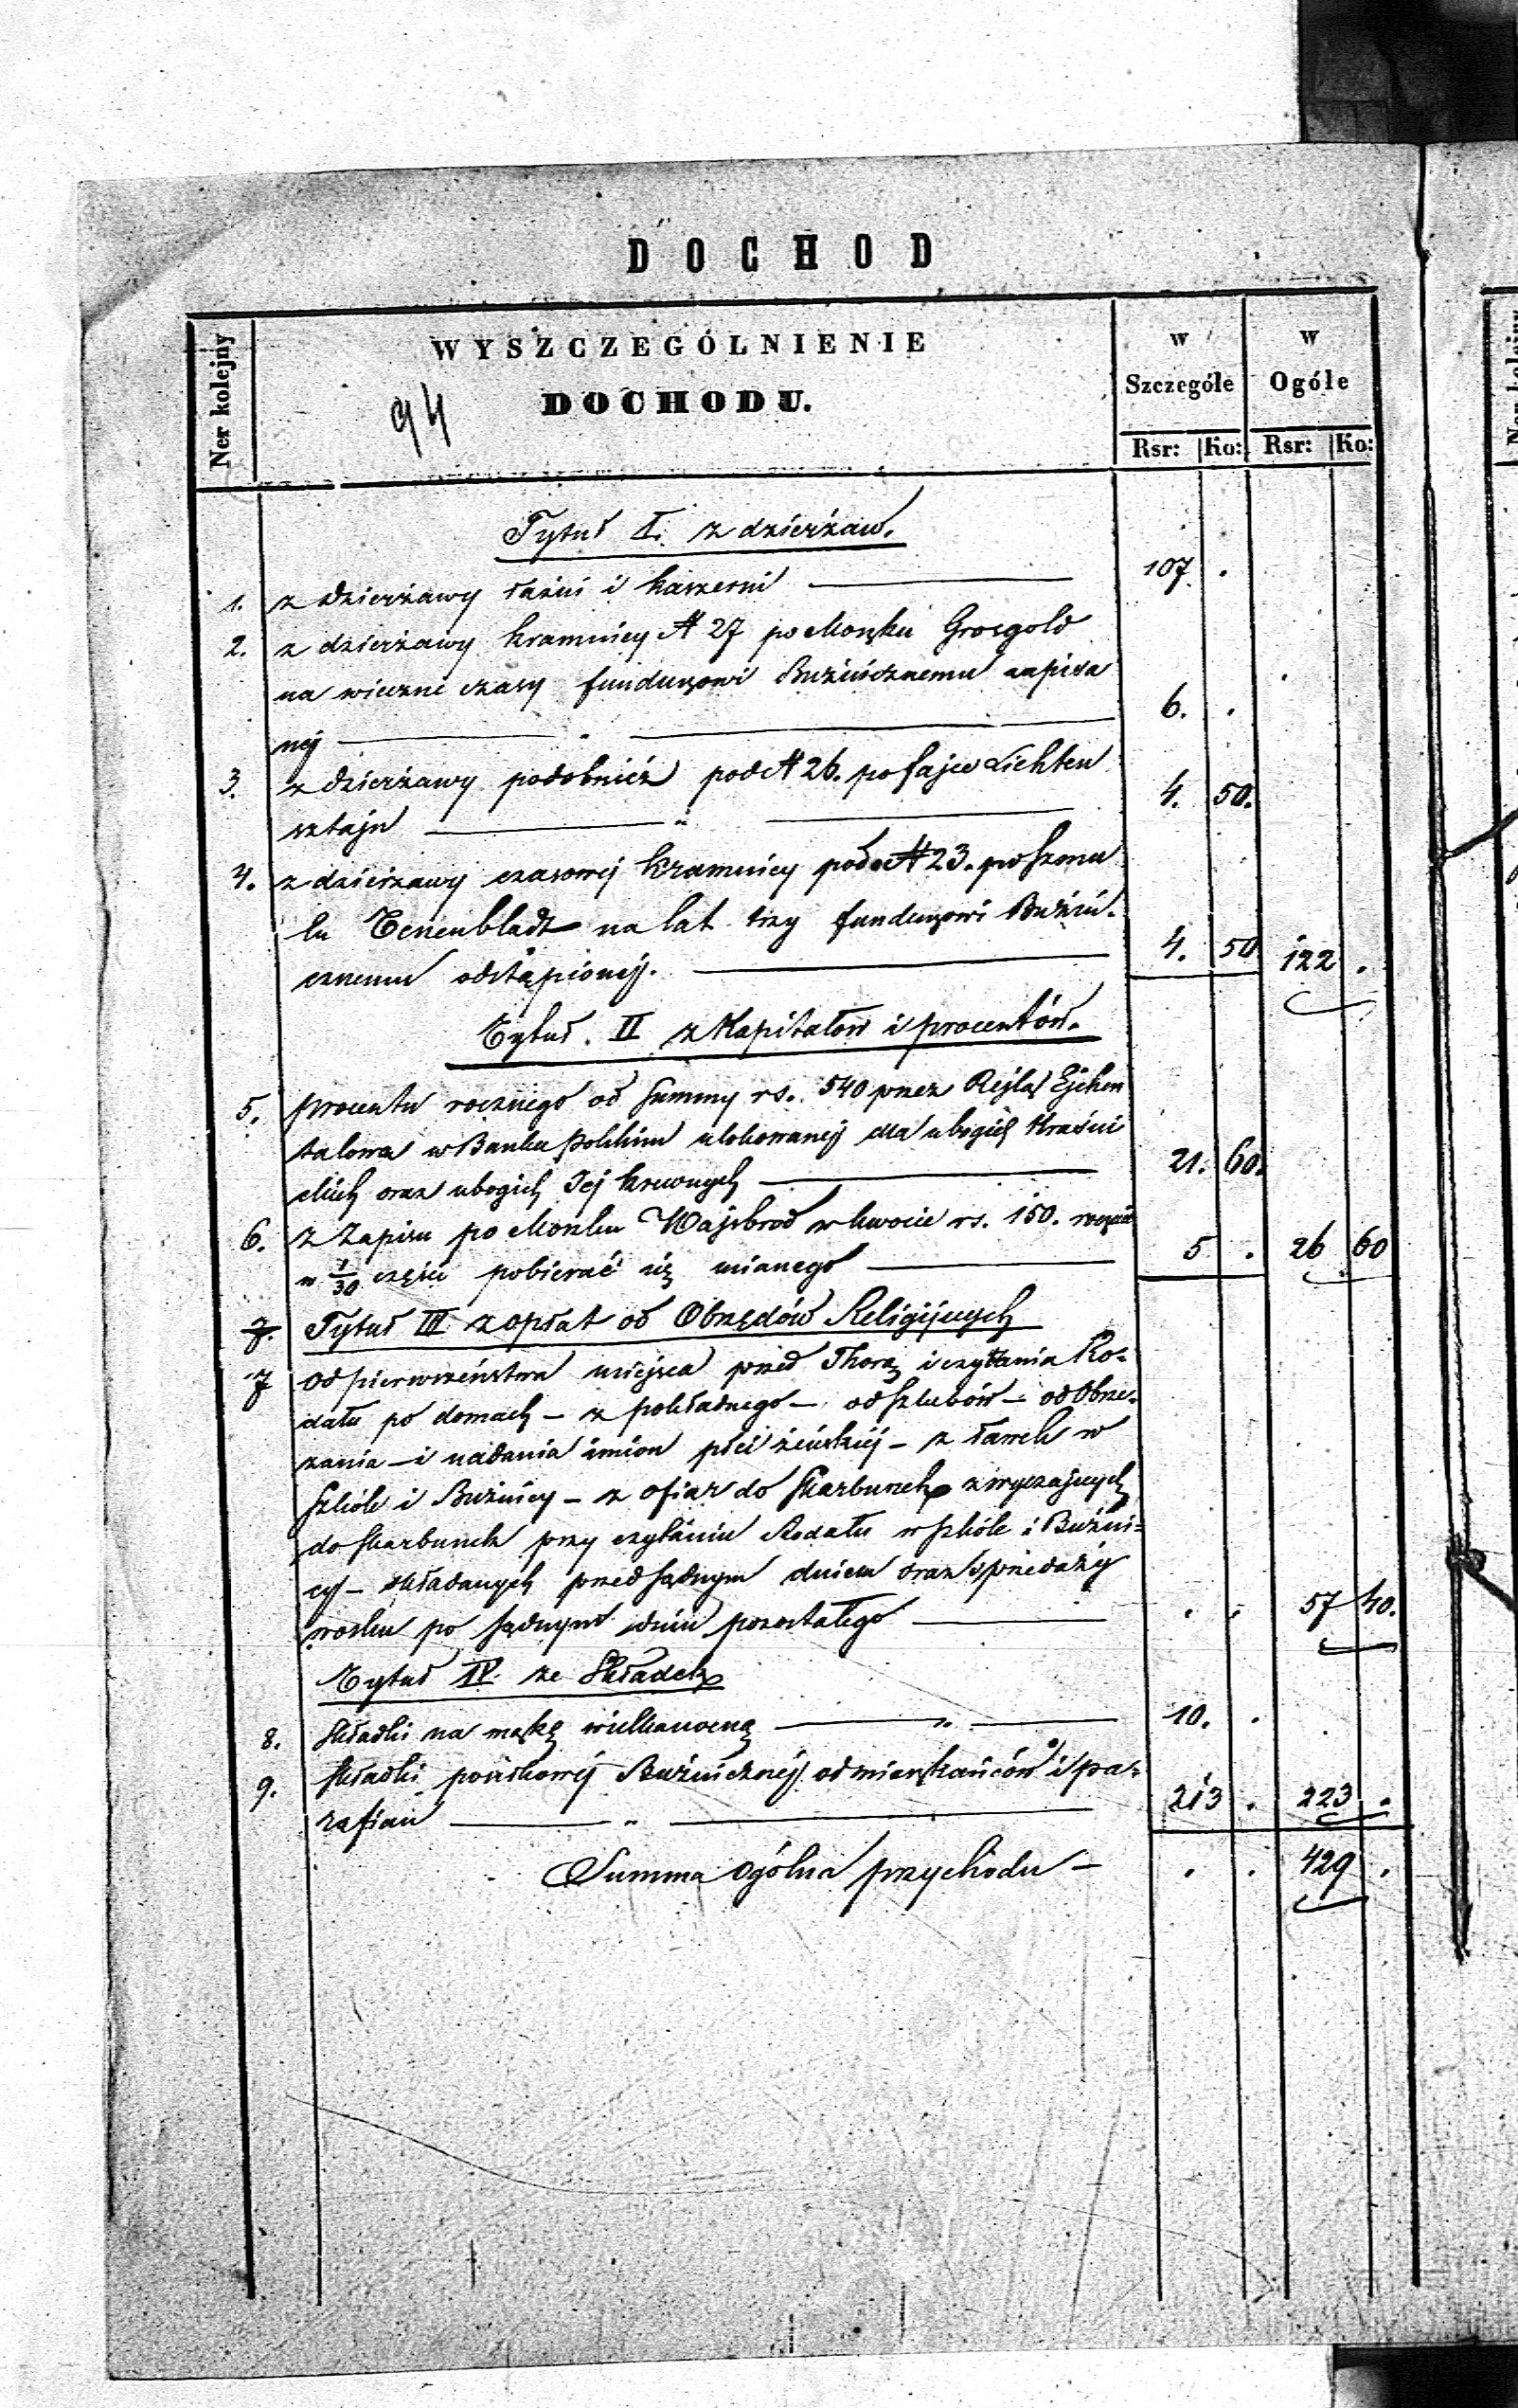 DOCHOD
Ner kolejny
WYSZCZEGÓLNIENIE
DOCHODU.
94
w Szczególe
w Ogóle
Rsr: Ko: Rsr: Ko:
Tytuł I. z dzierżaw.
1. z dzierżawy łaźni i koszerni 107 .
2. z dzierżawy kramnicy № 27 po Mośku Grosgold
na wieczne czasy funduszowi Bużnicznemu zapisa
nej 6. .
3. z dzierżawy podobnież pod № 26. po Fajce Lichten
sztajn 4. 50.
4. z dzierżawy czasowej kramnicy pod № 23. po Szmu
lu Tenenbladt na lat trzy funduszowi Bużni-
cznemu odstąpionej. 4. 50 122 .
Tytuł. II z Kapitałow i procentów.
5. procentu rocznego od Summy rs. 540 przez Rejlą Ejchen
talowa w Banku Polskim ulokowanej dla ubogich Kraśni
ckich oraz ubogich Jej krewnych 21. 60.
6. z Zapisu po Mośku Wajsbrod w kwocie rs. 150. rocznie
w 1/30 części pobierać się mianego 5 . 26 60
7. Tytuł III z opłat od Obrzędów Religijnych
7 od pierwszeństwa miejsca przed Thorą i czytania Ro-
dału po domach – z pokładnego – od szlubów – od Obrze-
zania – i nadania imion płci żeńskiej – z ławek w
Szkóle i Bużnicy – z ofiar do skarbonek zwyczajnych
do skarbonek przy czytaniu Rodału w szkóle i Bużni=
cy – składanych przed sądnym dniem oraz sprzedaży
wosku po sądnym dniu pozostałego . . 57 40.
Tytuł IV. ze Składek
8. Składki na mąkę wielkanocną 10. .
9. składki poiskowej Bużnicznej od mieszkańców i pa-
rafian 213 . 223 .
Summa ogólna przychodu – . . 429 .